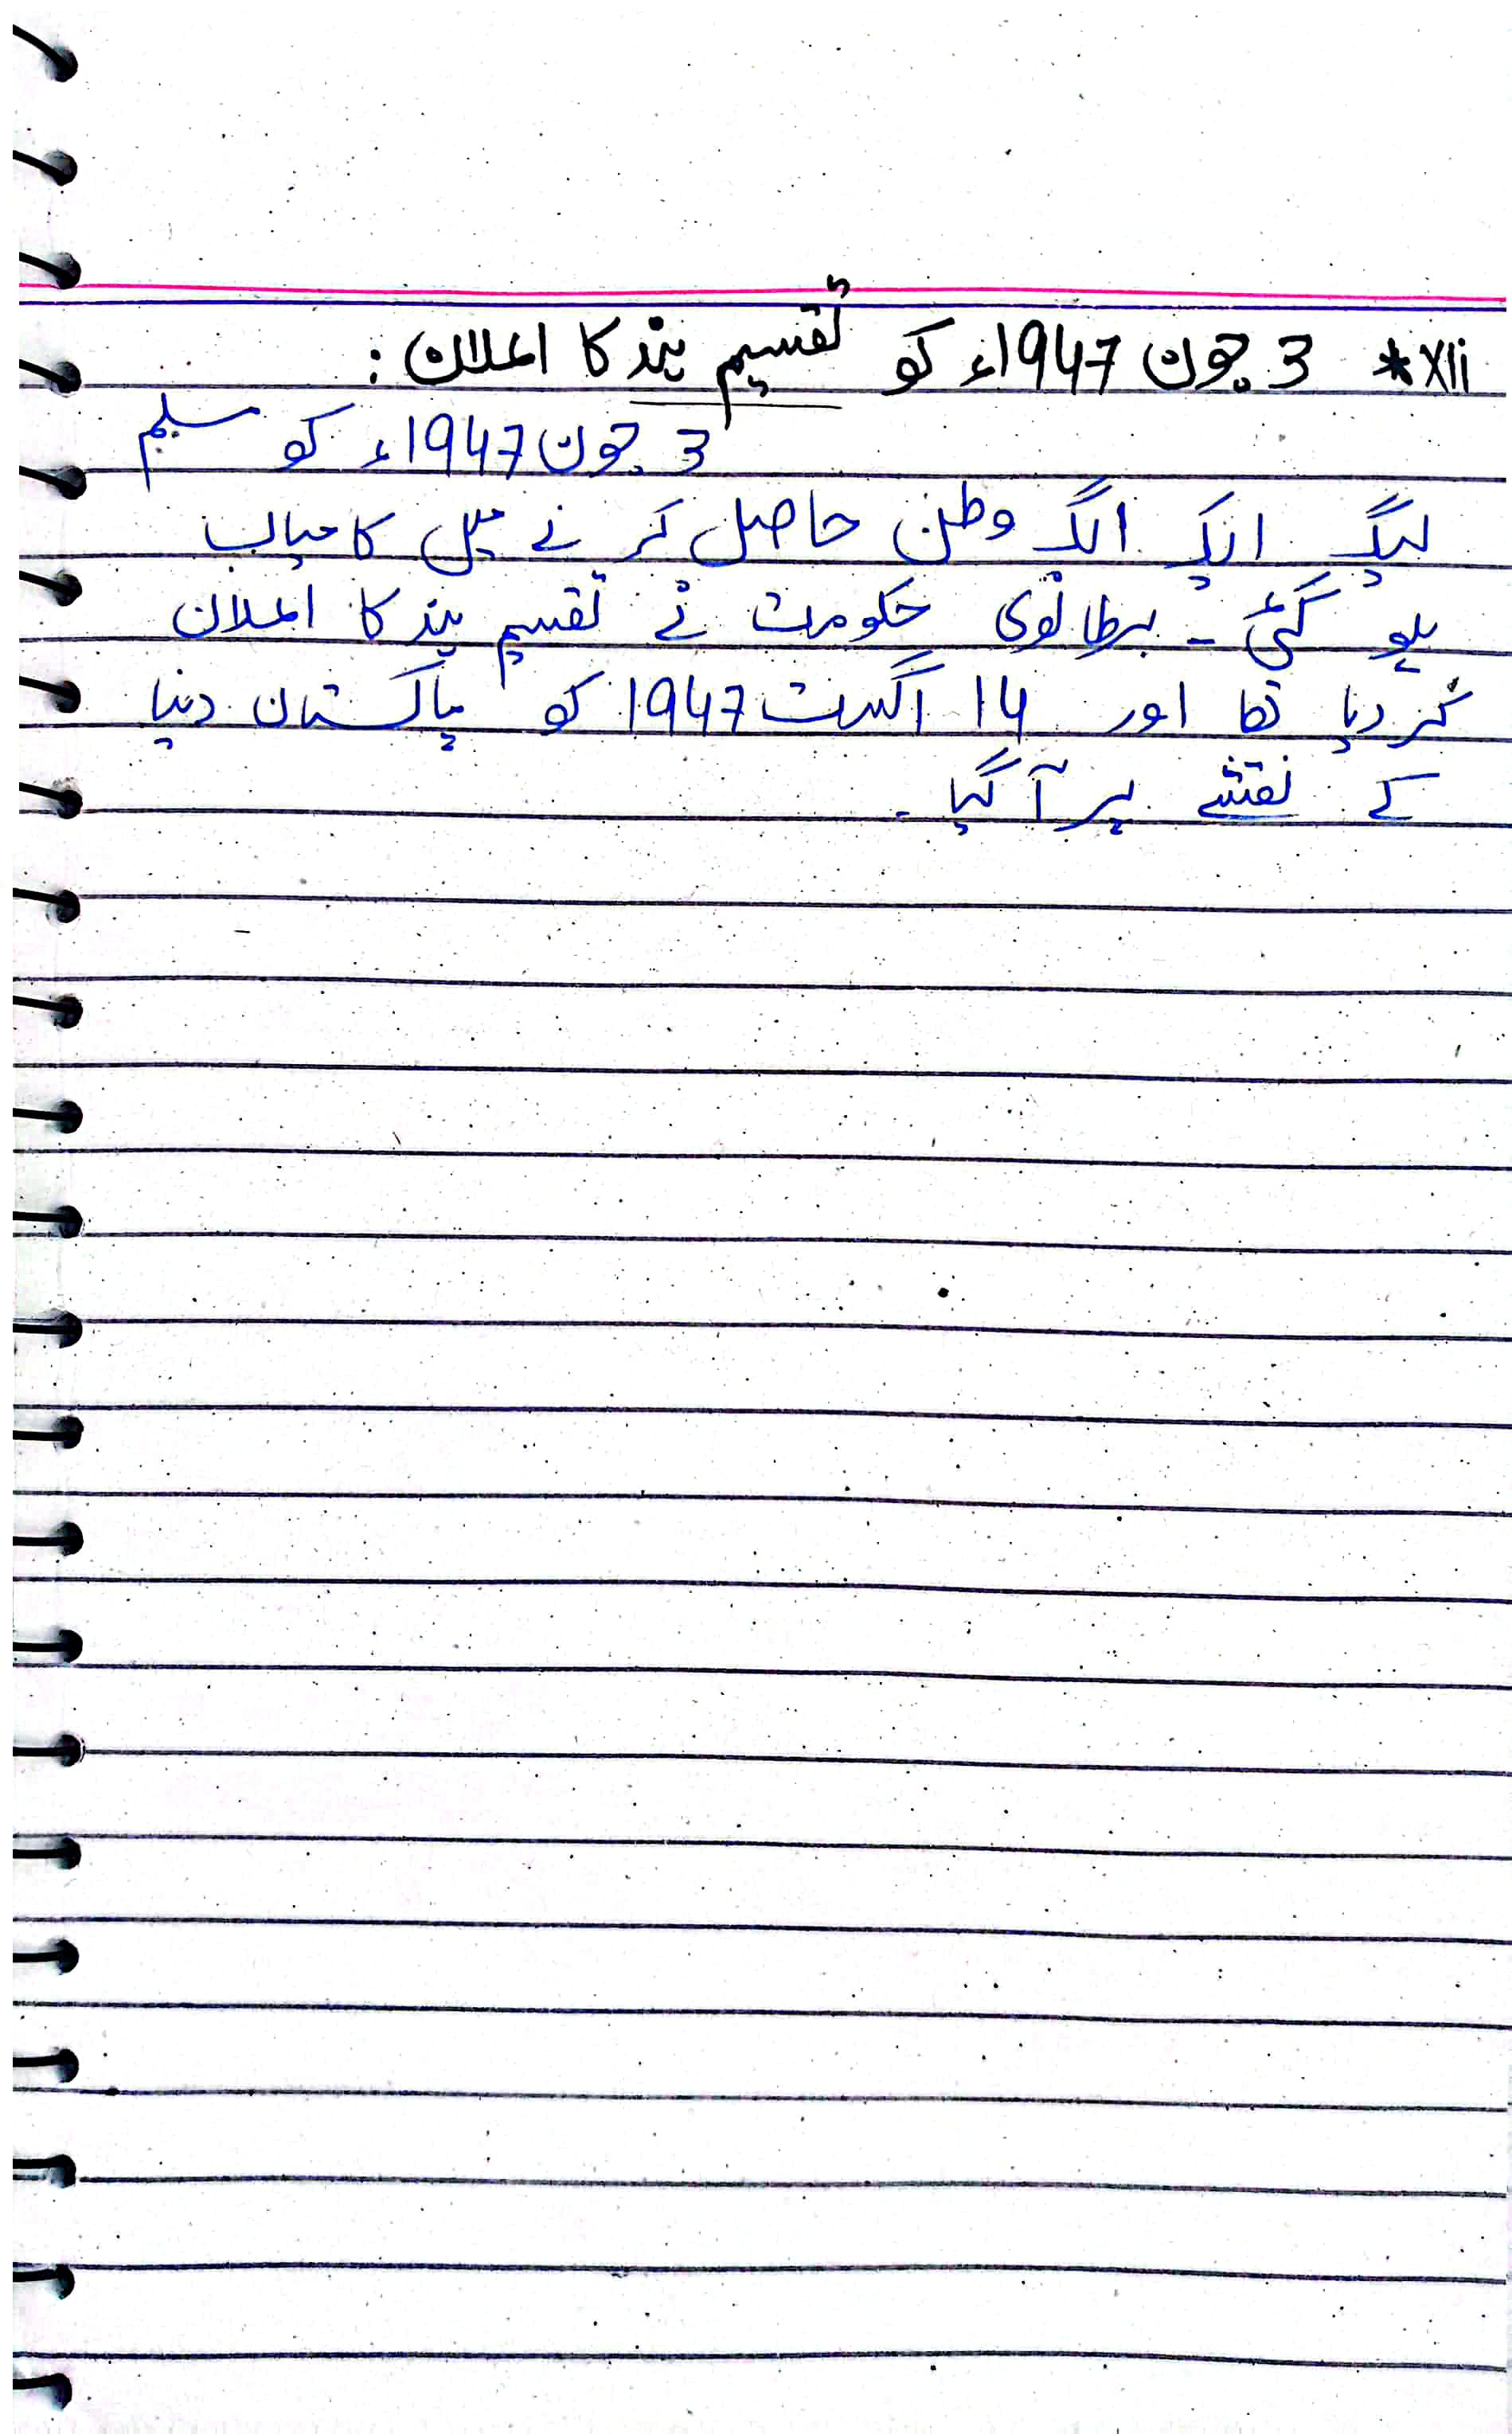 xii* 3 جون 1947ء کو تقسیم ہند کا اعلان :
3 جون 1947ء کو مسلم
لیگ ایک الگ وطن حاصل کرنے میں کامیاب
ہو گئی ۔ برطانوی حکومت نے تقسیم ہند کا اعلان
کر دیا تھا اور 14 اگست 1947 کو پاکستان دنیا
کے نقشے پر آ گیا ۔